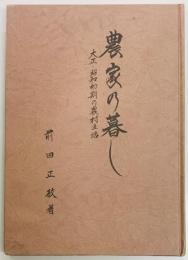 農家の暮し
大正 昭和初期の農村生活
前田正敏著